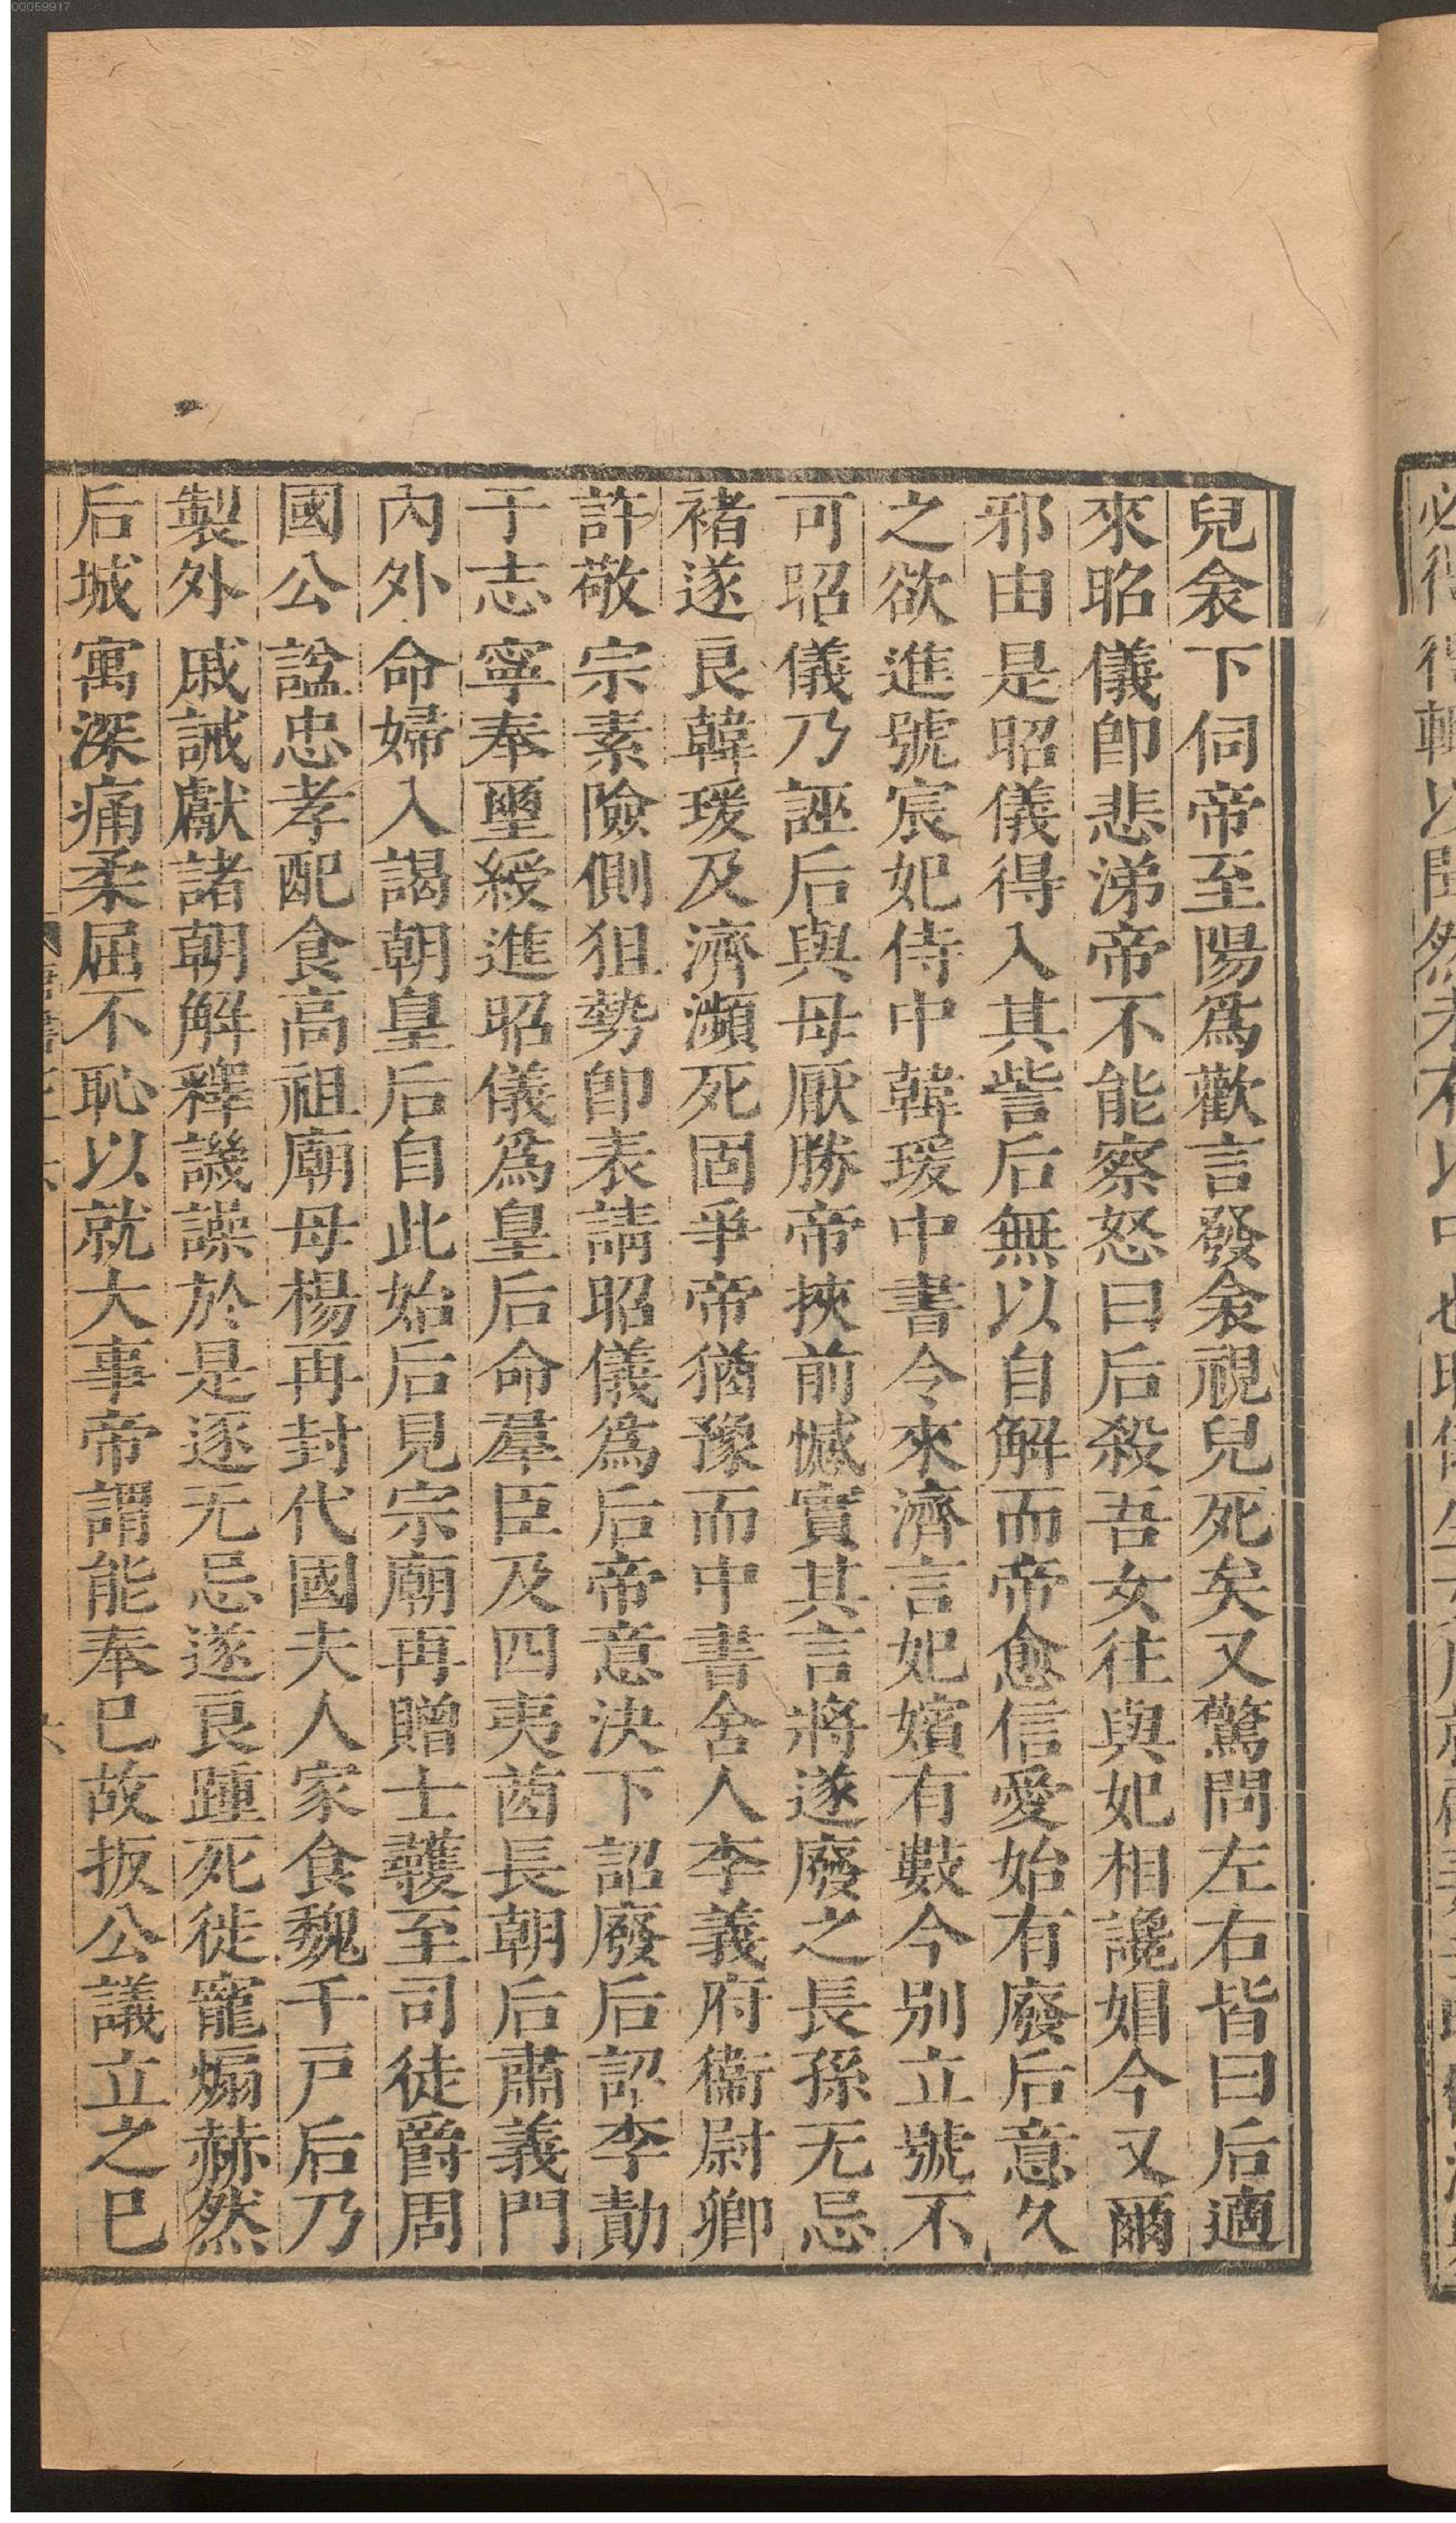 兒衾下伺帝至陽爲歡言發衾視兒死矣又驚問左右皆曰后適
來昭儀卽悲涕帝不能察怒曰后殺吾女往與妃相讒媢今又爾
邪由是昭儀得入其訾后無以自解而帝愈信愛始有廢后意久
之欲進號宸妃侍中韓瑗中書令來濟言妃嬪有數今別立號不
可昭儀乃誣后與母厭勝帝挾前憾實其言將遂廢之長孫无忌
褚遂良韓瑗及濟瀕死固爭帝猶豫而中書舍人李義府衞尉卿
許敬宗素險側狙勢卽表請昭儀爲后帝意決下詔廢后詔李勣
于志寧奉璽綬進昭儀爲皇后命羣臣及四夷酋長朝后肅義門
內外命婦入謁朝皇后自此始后見宗廟再贈士彠至司徒爵周
國公諡忠孝配食高祖廟母楊再封代國夫人家食魏千戶后乃
製外戚誡獻諸朝解釋譏譟於是逐无忌遂良踵死徙寵煽赫然
后城寓深痛柔屈不恥以就大事帝謂能奉巳故扳公議立之巳
00059917